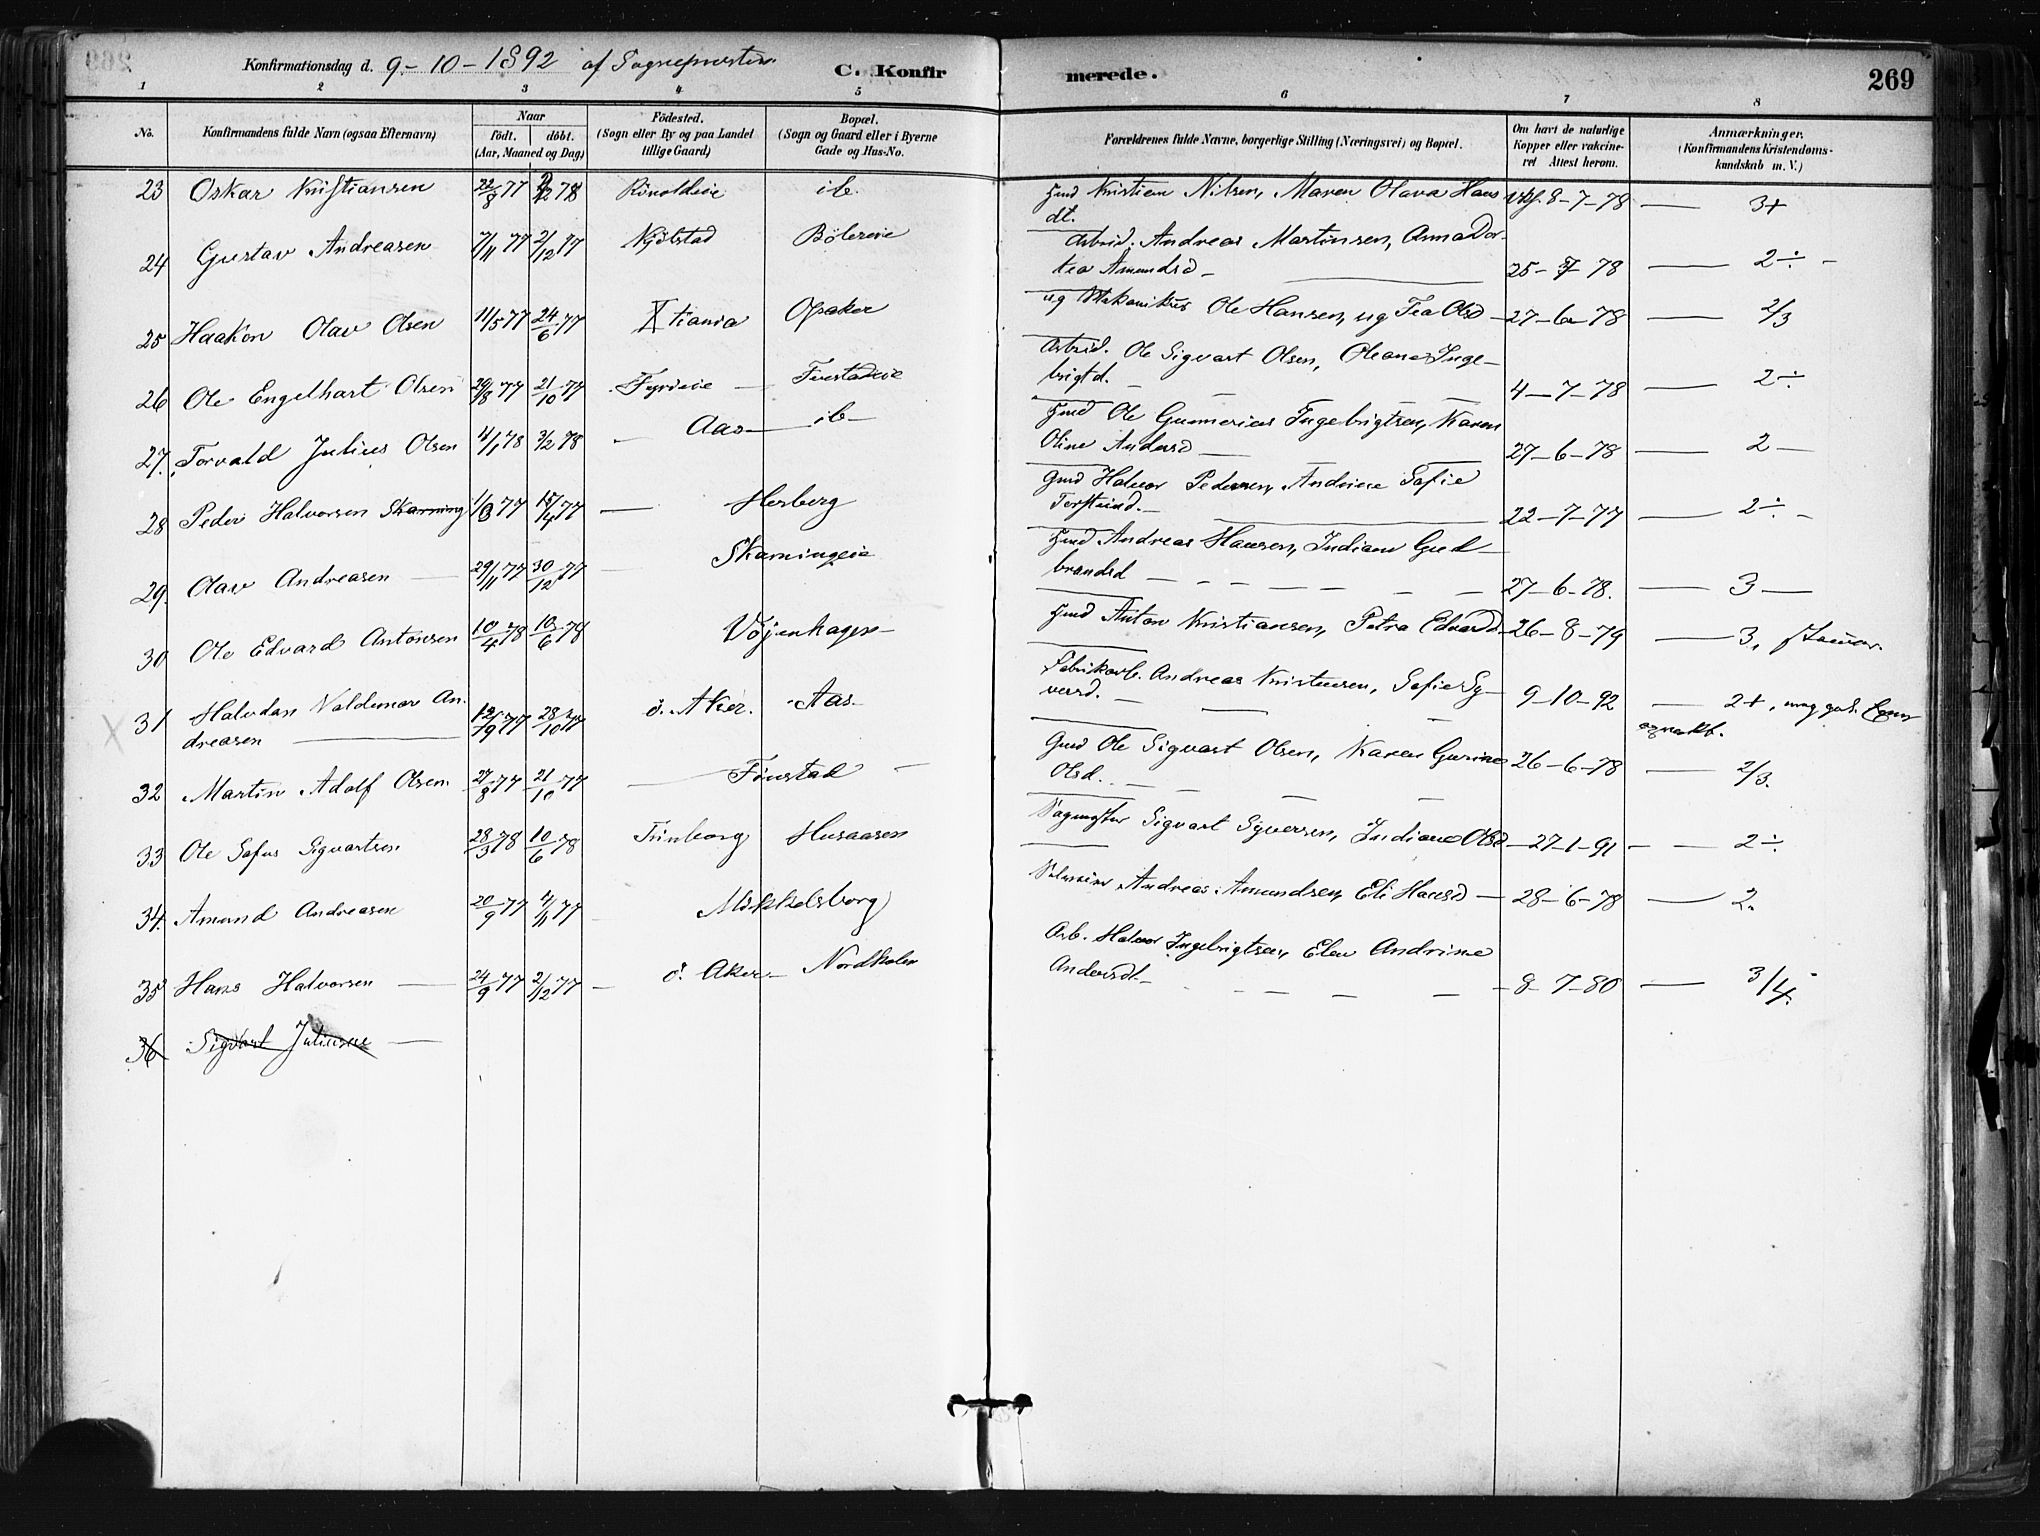 Konfirmationsdag d. 9-10-1892 af Sognepresten. C. Konfirmerede. 269
1 2 3 4 5 6 7 8
No. Konfirmandens fulde Navn (ogsaa Efternavn) Naar födt. döbt. (Aar, Maaned og Dag) Födested. (Sogn eller By og paa Landet tillige Gaard) Bopæl. (Sogn og Gaard eller i Byerne Gade og Hus-No. Forældrenes fulde Navne, borgerlige Stilling (Næringsvei) og Bopæl. Om havt de naturlige Kopper eller vakcineret Attest herom. Anmærkninger. (Konfirmandens Kristendomskundskab m. V.)
23 Oskar Kristiansen 22/8 77 78 ib. Gmd Kristian Nilsen, Maren Olava Hansdt. 8-7-78 — 3+
24 Gustav Andreasen 7/11 77 2/12 77 Nydlstad Bölereie Arbeid. Andreas Martinsen, Anna Dortea Amundsd — 25- 78 — 2÷ -
25 Haakon Olav Olsen 11/5 77 24/6 77 Xtiania Opaker ug Mekanikus Ole Hansen, ug Tea Olsd 27-6-78 — 2/3
26 Ole Engelhart Olsen 29/8 77 21/10 77 Arbeid. Ole Sigvart Olsen, Oleane Ingebrigtd. 4-7-78 — 2÷
27. Torvald Julius Olsen 4/1 78 3/2 78 — Aas — ib — Gmd Ole Gunnerius Ingebrigtsen, Karen Oline Andersd — 27-6-78 — 2 —
28 Peder Halvorsen Skarning 1/3 77 15/4 77 — Herberg Gmd Halvor Pedersen, Andrine Sofie Torsteind. — 22-7-77 — 2÷ -
29. Olav Andreasen — 29/11 77 30/12 77 Skarningeie Gmd Andreas Hansen, Indiane Gudbrandsd — 27-6-78. — 3 —
30 Ole Edvard Antonsen 10/4 78 10/6 78 Vöjenhagen — Gmd Anton Kristiansen, Petra Edvardd 26-8-79 — 3,
31 Halvdan Valdemar Andreasen — 12/9 77 28/10 77 ö. Aker. Aas — Fabrikarb. Andreas Kristensen, Sofie Syversd. — 9-10-92 — 2+,
32 Martin Adolf Olsen 27/8 77 21/10 77 — Finstad — Gmd Ole Sigvart Olsen, Karen Gurine Olsd. — 26-6-78 — 2/3.
33 Ole Sofus Sigvartsen 28/3 78 10/6 78 Finborg Husaasen Sagmster Sigvart Syversen, Indiane Olsd — 27-1-91 — 2÷
34. Amund Andreasen 20/9 77 4/11 77 Mikkelsborg Andreas Amundsen, Eli Hansd — 28-6-78 — 2.
35 Hans Halvorsen — 24/9 77 2/12 77 — ö. Aker — Nordkolen Arb. Halvor Ingebrigtsen, Elen Andrine Andersdt — 8-7-80 — 3/4.
36 Sigvart Juliussen —